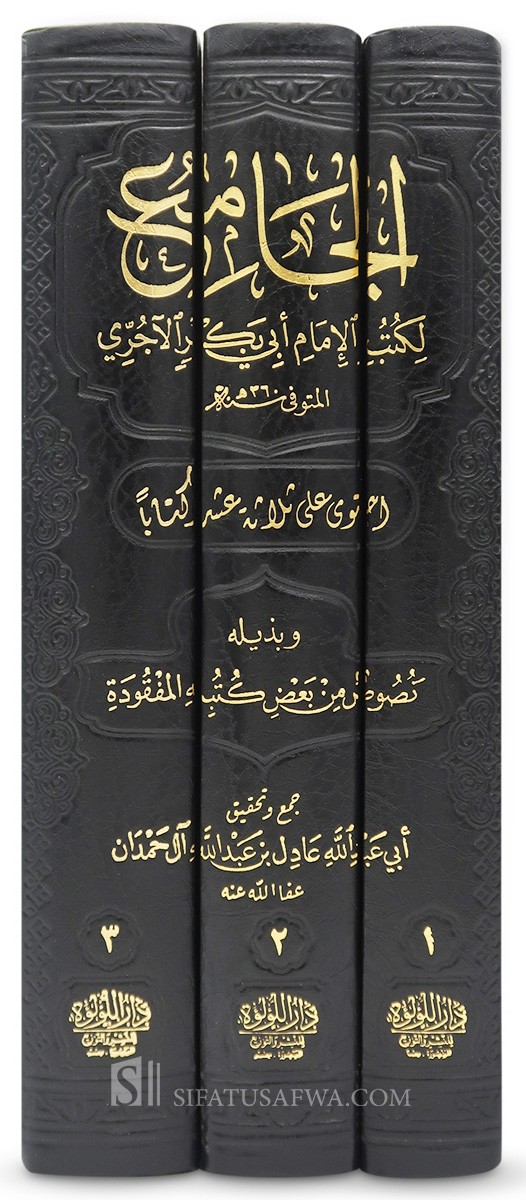 الجامع
لِكُتُبِ الإِمَامِ أَبِي بَكْرٍ الآجُرِّي
المتوفى سنة ٣٦٠هـ
احتوى على ثلاثة عشر كتاباً
وبذيله
نُصُوصٌ مِنْ بَعْضِ كُتُبِهِ المَفْقُودَةِ
جمع وتحقيق
أَبِي عَبْدِ اللَّهِ عَادِل بن عَبْدِ اللَّهِ آل حَمْدَان
عفا الله عنه
١ ٢ ٣
دَارُ اللُّؤْلُؤَة دَارُ اللُّؤْلُؤَة دَارُ اللُّؤْلُؤَة
للنشر والتوزيع للنشر والتوزيع للنشر والتوزيع
SIFATUSAFWA.COM